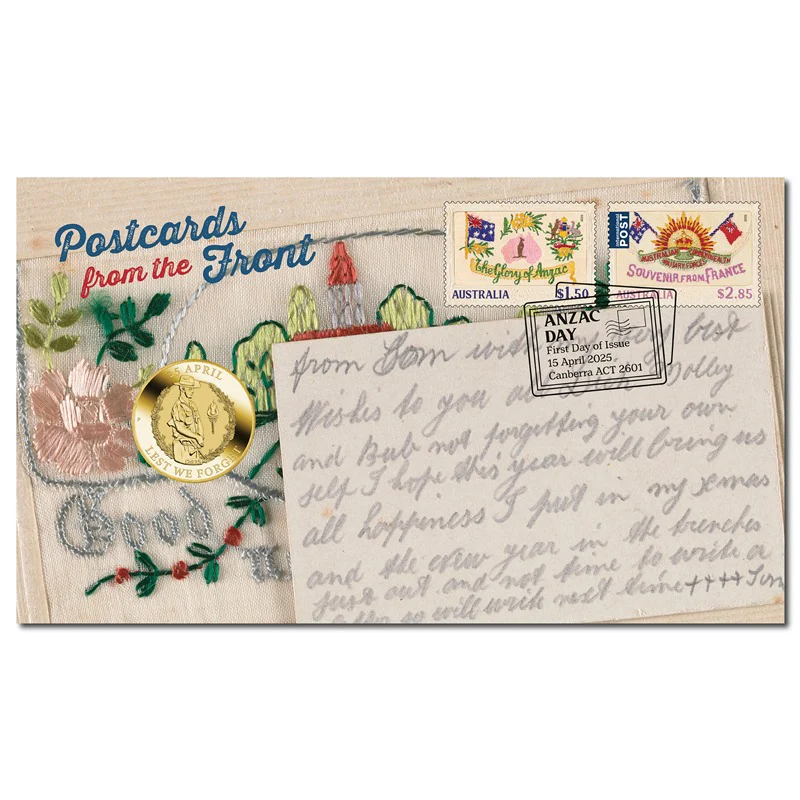 Postcards
from the Front
The Glory of Anzac
AUSTRALIA $1.50
INTERNATIONAL POST
AUSTRALIAN COMMONWEALTH
MILITARY FORCES
SOUVENIR FROM FRANCE
AUSTRALIA $2.85
ANZAC
DAY
First Day of Issue
15 April 2025
Canberra ACT 2601
25 APRIL
LEST WE FORGET
Good
from Tom with very best
Wishes to you all Dolley
and Bub not forgetting your own
self I hope this year will bring us
all happiness I put in my xmas
and the New year in the trenches
just out and not time to write a
so will write next time ++++ Tom